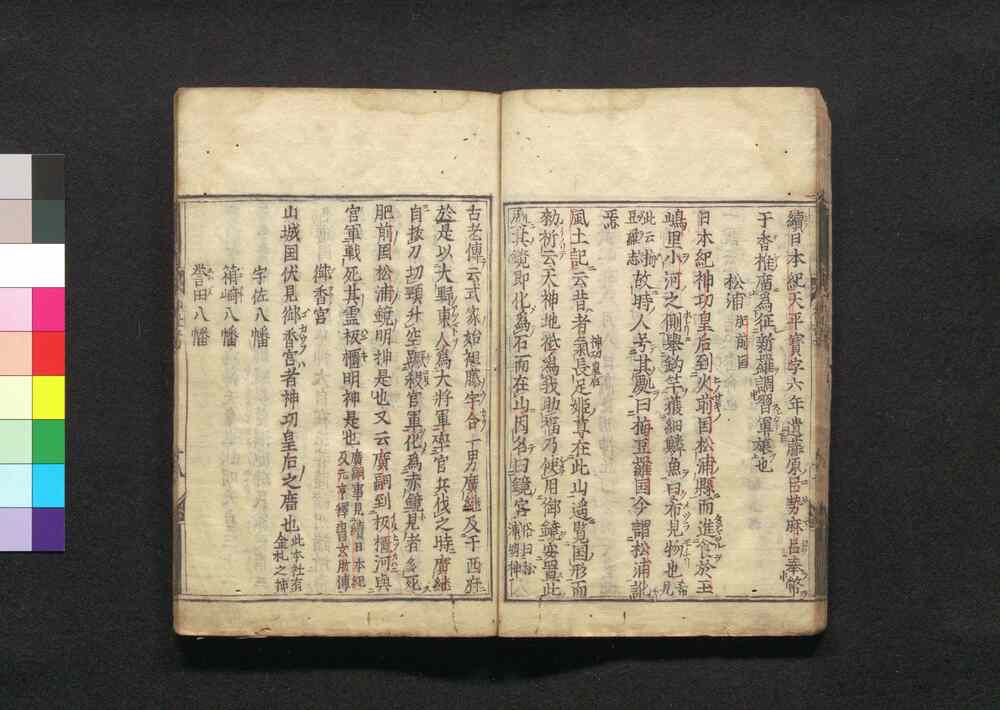 續日本紀天平寶字六年遣藤原巨勢麻呂奉幣
于香椎廟為征新羅調習軍旅也
松浦 肥前国
日本紀神功皇后到火前国松浦縣而進食於玉
嶋里小河之側舉鈎竿獲細鱗魚曰希見物也 希見
此云梅豆羅志 故時人号其處曰梅豆羅国今謂松浦訛
焉
風土記云昔者氣長足姫尊在此山遥覧国形而 神功皇后
勅祈云天神地祇為我助福乃使用御鏡安置此
處其鏡即化為石而在山因名曰鏡宮
古老傳云式家始祖藤宇合一男廣継及于西府
於是以大野東人為大將軍率官兵伐之時廣継
自拔刀切頸升空蹶殺官軍化為赤鏡見者多死
肥前国松浦鏡明神是也又云廣嗣到板櫃河與
官軍戰死其霊板櫃明神是也 廣嗣事見續日本紀及元亨釋書玄昉傳
御香宮
山城国伏見御香宮者神功皇后之廟也 此本社有金札之神
宇佐八幡
筥崎八幡
誉田八幡